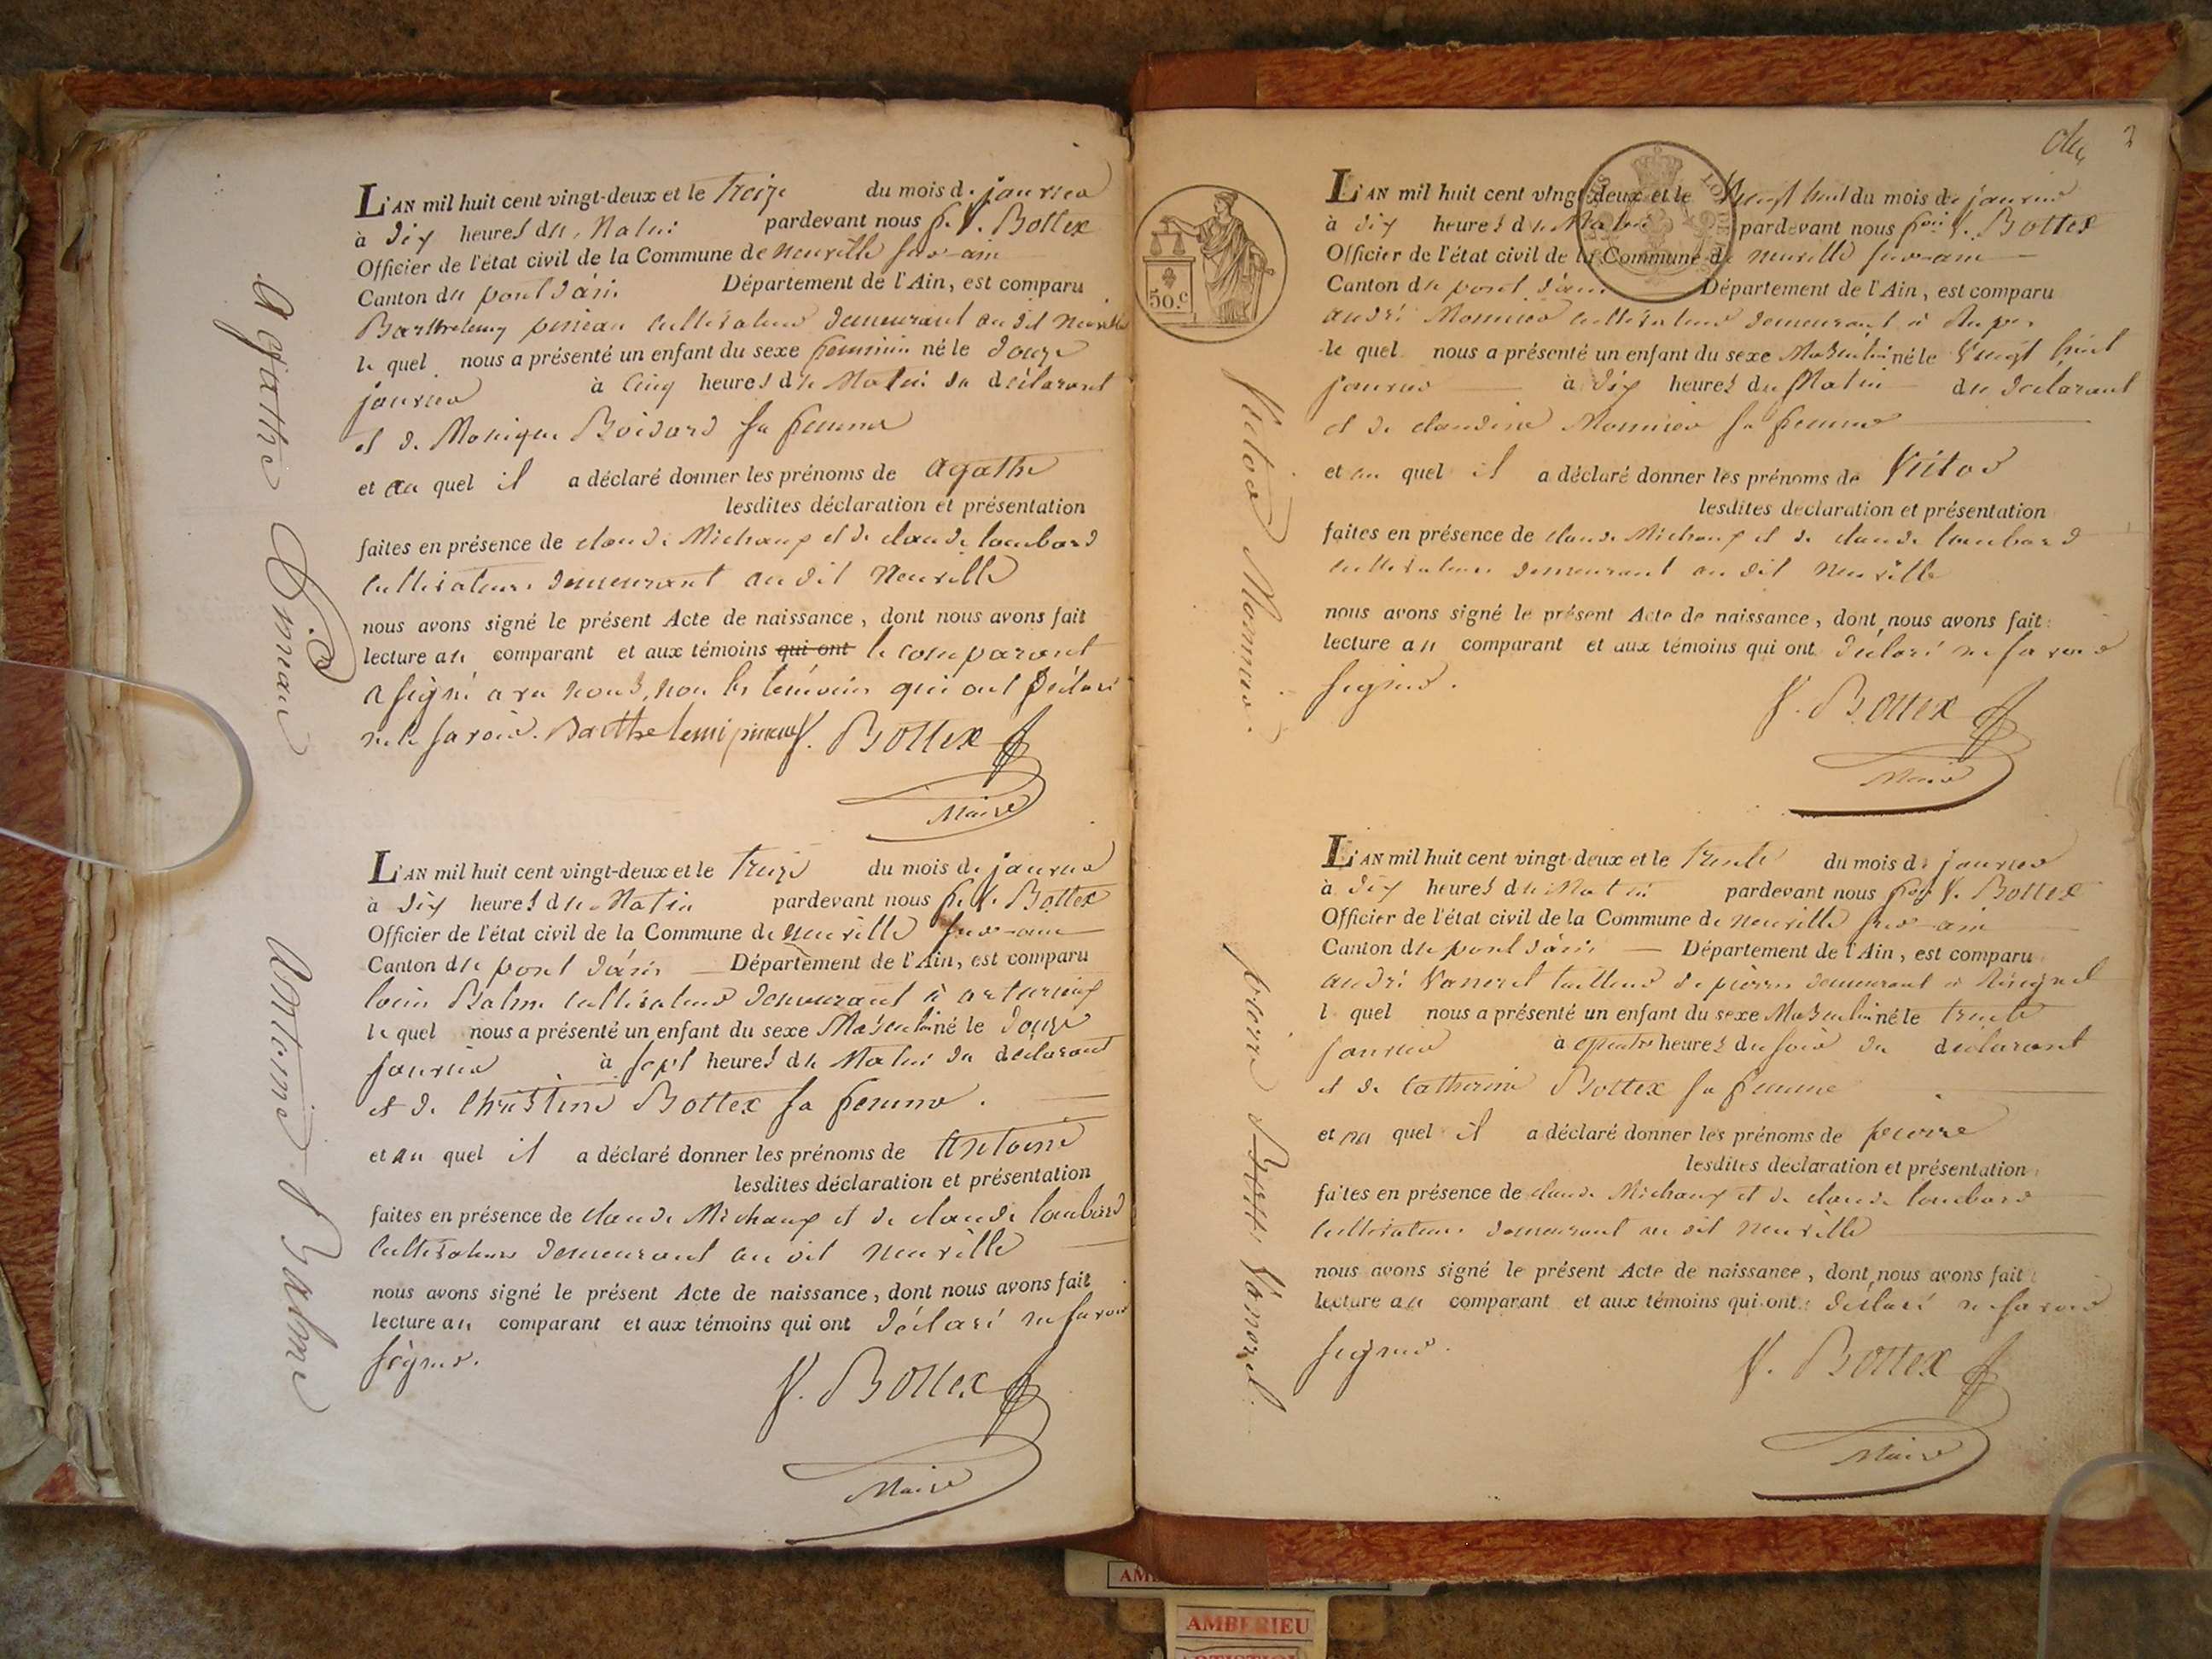 L'AN mil huit cent vingt-deux et le treize du mois de janvier
à dix heures du Matin pardevant nous f. V. Bottex
Officier de l'état civil de la Commune de neuville sur-ain
Canton du pont d'ain Département de l'Ain, est comparu
Barthelemy pineau cultivateur demeurant au dit neuville
le quel nous a présenté un enfant du sexe feminin né le douze
janvier à cinq heures du Matin du déclarant
et de Monique Boidard sa femme
et au quel il a déclaré donner les prénoms de agathe
lesdites déclaration et présentation
faites en présence de claude Michaux et de claude loubard
cultivateurs demeurant au dit Neuville
nous avons signé le présent Acte de naissance, dont nous avons fait
lecture au comparant et aux témoins qui ont le comparant
a signé avec nous, non les témoins qui ont déclaré
ne le savoir. Barthelemi pineau V. Bottex
Maire
Agathe Pineau
L'AN mil huit cent vingt-deux et le treize du mois de janvier
à dix heures du Matin pardevant nous f. V. Bottex
Officier de l'état civil de la Commune de neuville sur-ain
Canton du pont d'ain Département de l'Ain, est comparu
louis Balme cultivateur demeurant à
le quel nous a présenté un enfant du sexe Masculin né le douze
janvier à sept heures du Matin du déclarant
et de Christine Bottex sa femme.
et au quel il a déclaré donner les prénoms de Antoine
lesdites déclaration et présentation
faites en présence de claude Michaux et de claude loubard
cultivateurs demeurant au dit neuville
nous avons signé le présent Acte de naissance, dont nous avons fait
lecture au comparant et aux témoins qui ont déclaré ne savoir
signer.
V. Bottex
Maire
Antoine Balme
2
50.c
L'AN mil huit cent vingt-deux et le Vingt huit du mois de janvier
à dix heures du Matin pardevant nous V. Bottex
Officier de l'état civil de la Commune de neuville sur-ain
Canton du pont d'ain Département de l'Ain, est comparu
andré Monnier cultivateur demeurant à
le quel nous a présenté un enfant du sexe Masculin né le Vingt huit
janvier à dix heures du Matin du déclarant
et de claudine Monnier sa femme
et au quel il a déclaré donner les prénoms de Victor
lesdites déclaration et présentation
faites en présence de claude Michaux et de claude loubard
cultivateurs demeurant au dit neuville
nous avons signé le présent Acte de naissance, dont nous avons fait
lecture au comparant et aux témoins qui ont déclaré ne savoir
signer.
V. Bottex
Maire
Victor Monnier.
L'AN mil huit cent vingt-deux et le trente du mois de janvier
à dix heures du Matin pardevant nous V. Bottex
Officier de l'état civil de la Commune de neuville sur-ain
Canton du pont d'ain Département de l'Ain, est comparu
andré Vanerel tailleur de pierres demeurant à
le quel nous a présenté un enfant du sexe Masculin né le trente
janvier à quatre heures du soir du déclarant
et de Catherine Bottex sa femme
et au quel il a déclaré donner les prénoms de pierre
lesdites déclaration et présentation
faites en présence de claude Michaux et de claude loubard
cultivateurs demeurant au dit neuville
nous avons signé le présent Acte de naissance, dont nous avons fait
lecture au comparant et aux témoins qui ont déclaré ne savoir
signer.
V. Bottex
Maire
pierre Vanerel.
AMBERIEU